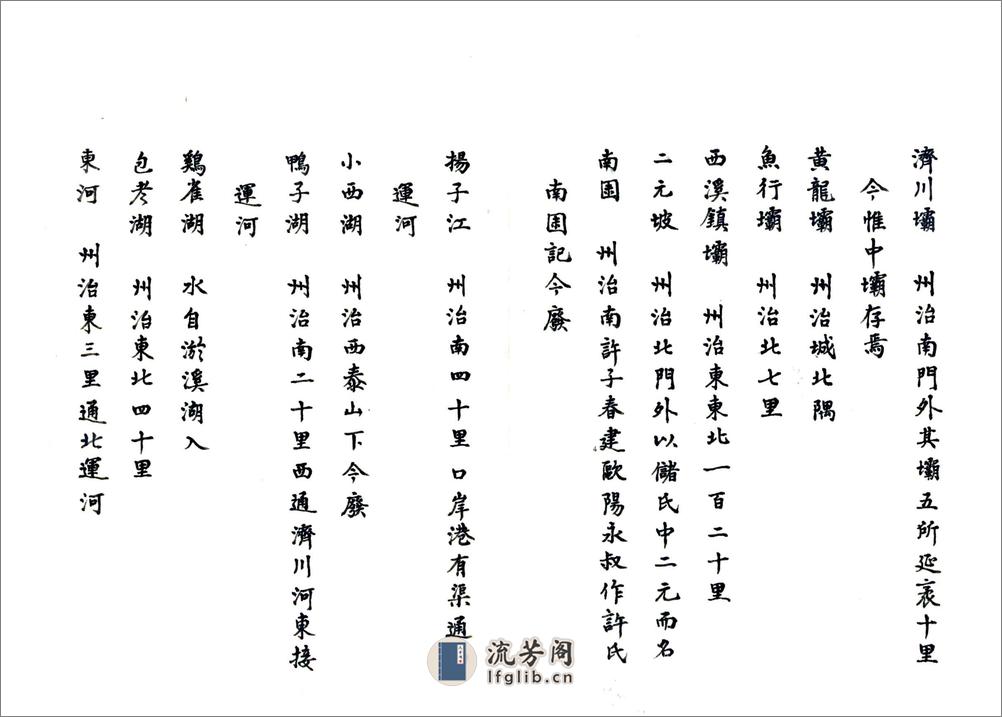 濟川壩 州治南門外其壩五所延袤十里
今惟中壩存焉
黄龍壩 州治城北隅
魚行壩 州治北七里
西溪鎮壩 州治東東北一百二十里
二元坡 州治北門外以儲氏中二元而名
南園 州治南許子春建歐陽永叔作許氏
南園記今廢
揚子江 州治南四十里口岸港有渠通
運河
小西湖 州治西泰山下今廢
鴨子湖 州治南二十里西通濟川河東接
運河
鷄雀湖 水自淤溪湖入
包老湖 州治東北四十里
東河 州治東三里通北運河
流芳阁
lfglib.cn